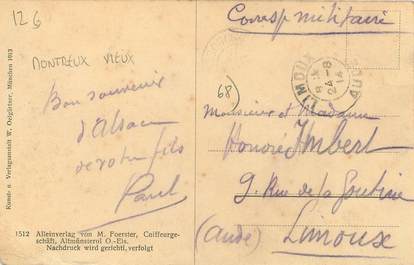 12€
MONTREUX VIEUX
Bon souvenir
d'Alsace
de votre fils
Paul
Kunst- u Verlagsanstalt W. Oelgärtner, München 1913
1512 Alleinverlag von M. Foerster, Coiffeurge-
schäft, Altmünsterol O.-Els.
Nachdruck wird gerichtl. verfolgt
Corresp militaire
LIMOUX AUDE
24-8
14
68)
Monsieur et Madame
Honoré Imbert
9. Rue de la
(Aude) Limoux